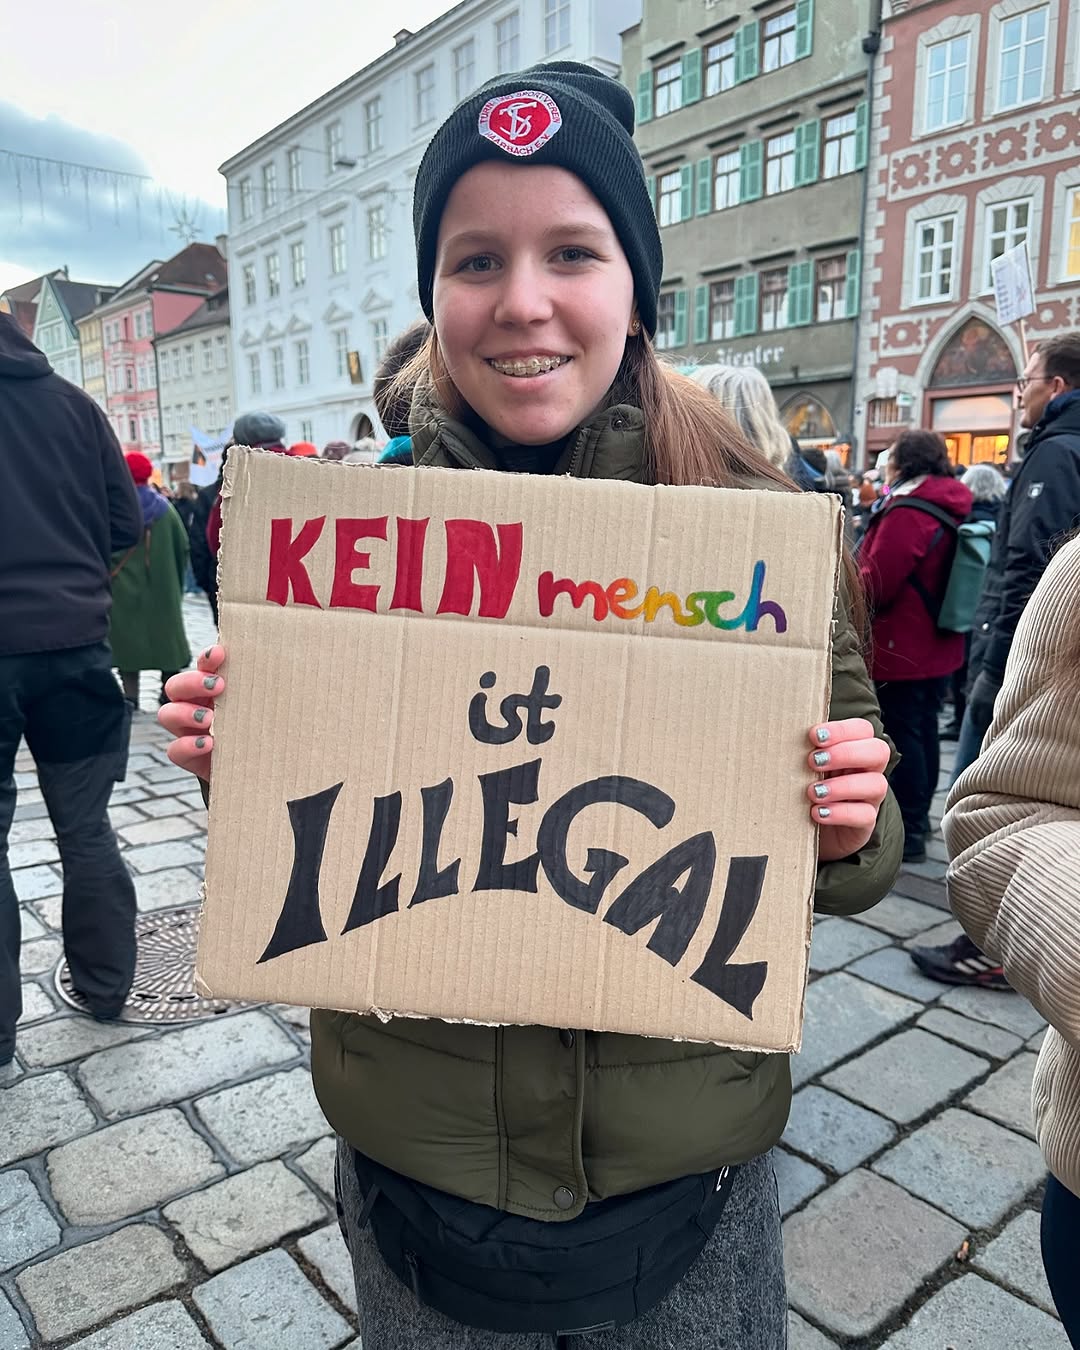 TURN- UND SPORTVEREIN
MARBACH E.V.
Ziegler
KEIN mensch
ist
ILLEGAL